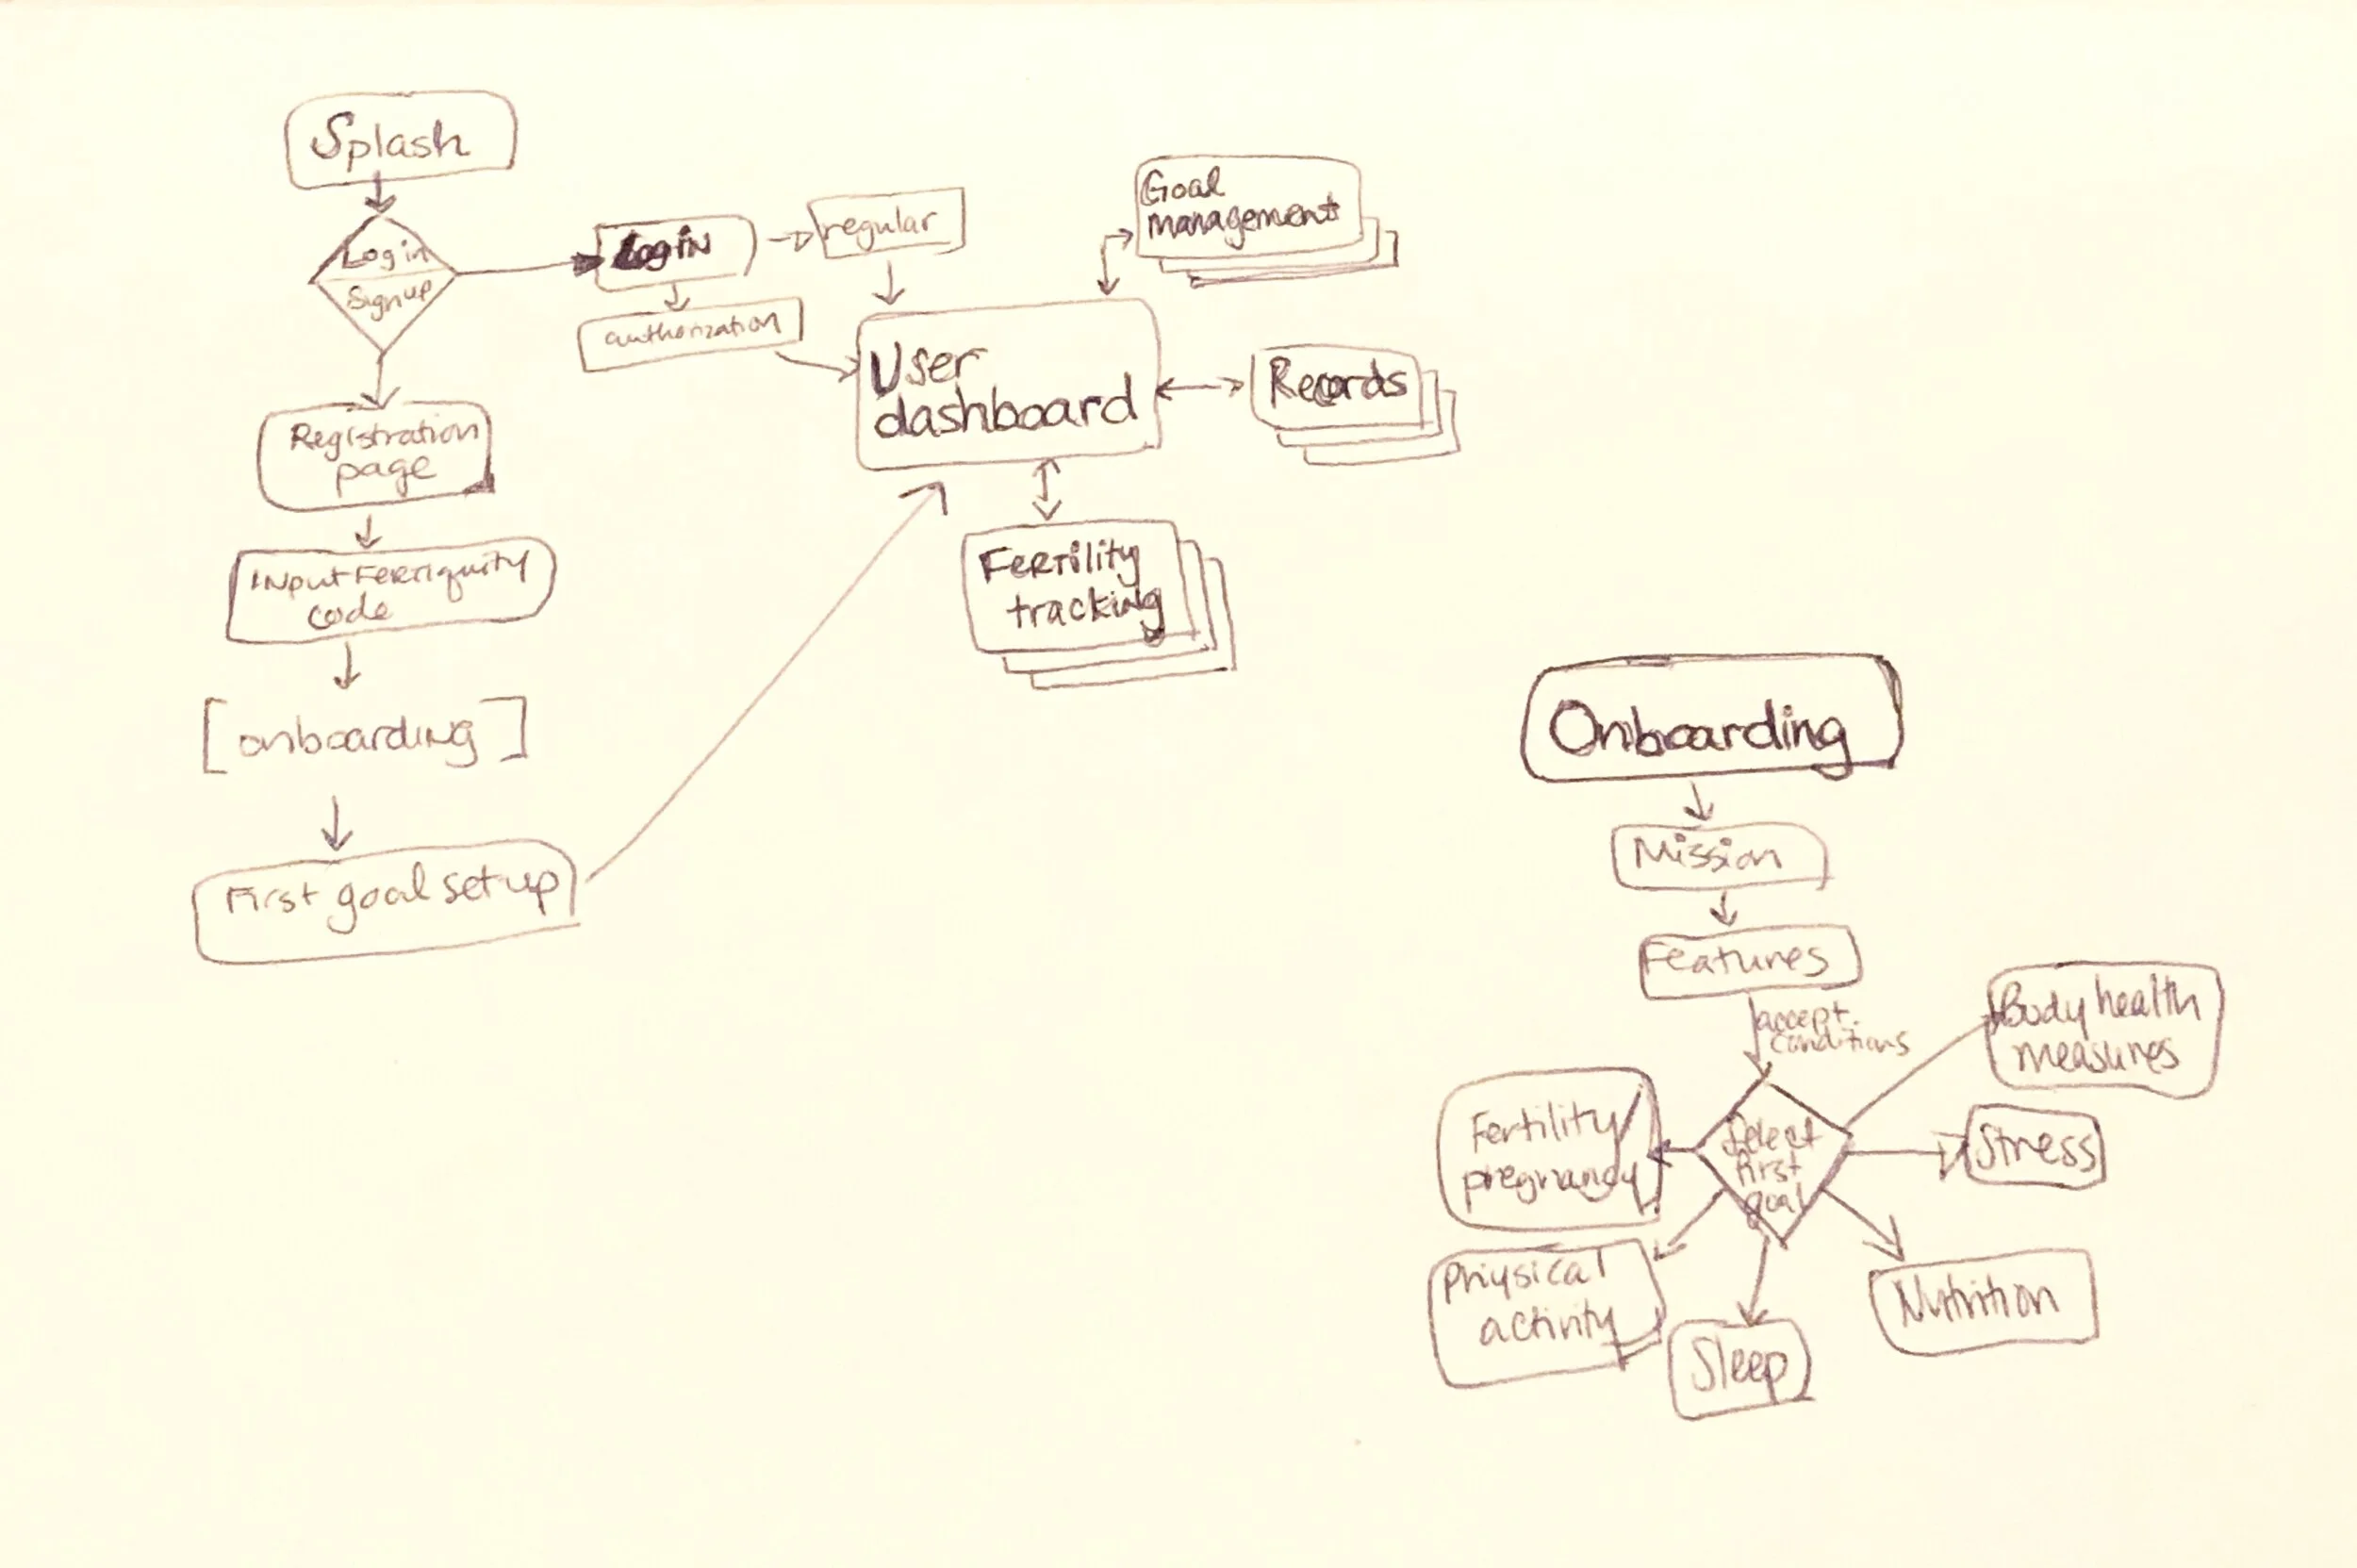 Splash
Log in
Sign up
Login
regular
authorization
Goal
management
User
dashboard
Records
Registration
page
Input Fertiquity
code
Fertility
tracking
[onboarding]
First goal set up
Onboarding
Mission
Features
accept.
conditions
Body health
measures
Fertility/
pregnancy
Select
first
goal
Stress
Physical
activity
Sleep
Nutrition